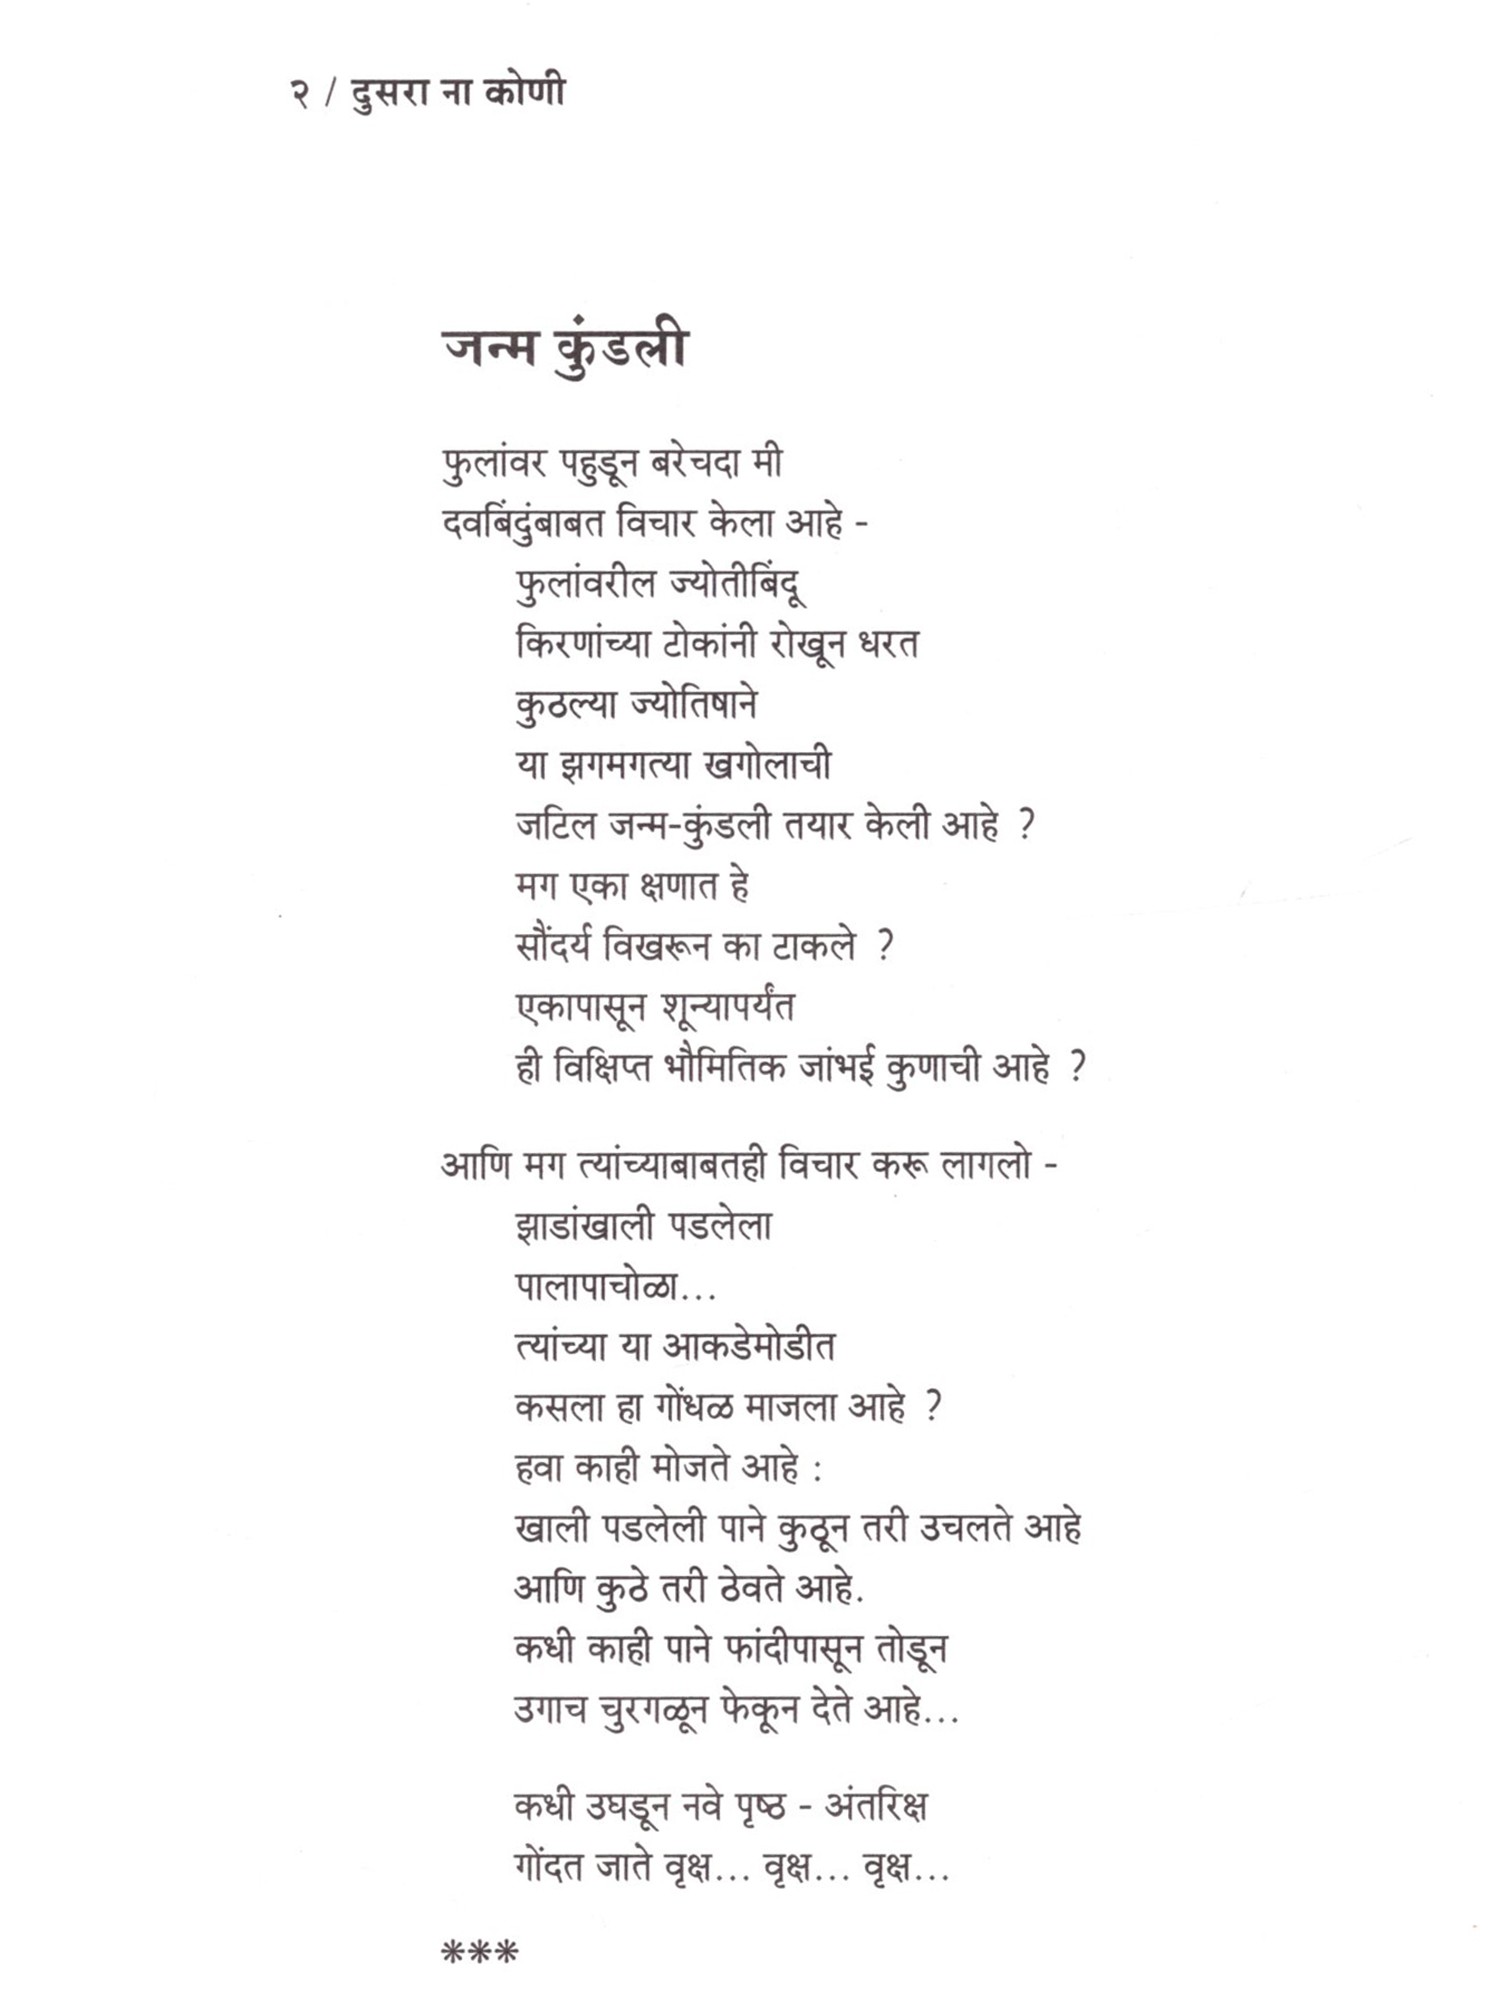 २ / दुसरा ना कोणी
जन्म कुंडली
फुलांवर पहुडून बरेचदा मी
दवबिंदुंबाबत विचार केला आहे -
फुलांवरील ज्योतीबिंदू
किरणांच्या टोकांनी रोखून धरत
कुठल्या ज्योतिषाने
या झगमगत्या खगोलाची
जटिल जन्म-कुंडली तयार केली आहे ?
मग एका क्षणात हे
सौंदर्य विखरून का टाकले ?
एकापासून शून्यापर्यंत
ही विक्षिप्त भौमितिक जांभई कुणाची आहे ?
आणि मग त्यांच्याबाबतही विचार करू लागलो -
झाडांखाली पडलेला
पालापाचोळा...
त्यांच्या या आकडेमोडीत
कसला हा गोंधळ माजला आहे ?
हवा काही मोजते आहे :
खाली पडलेली पाने कुठून तरी उचलते आहे
आणि कुठे तरी ठेवते आहे.
कधी काही पाने फांदीपासून तोडून
उगाच चुरगळून फेकून देते आहे...
कधी उघडून नवे पृष्ठ - अंतरिक्ष
गोंदत जाते वृक्ष... वृक्ष... वृक्ष...
***